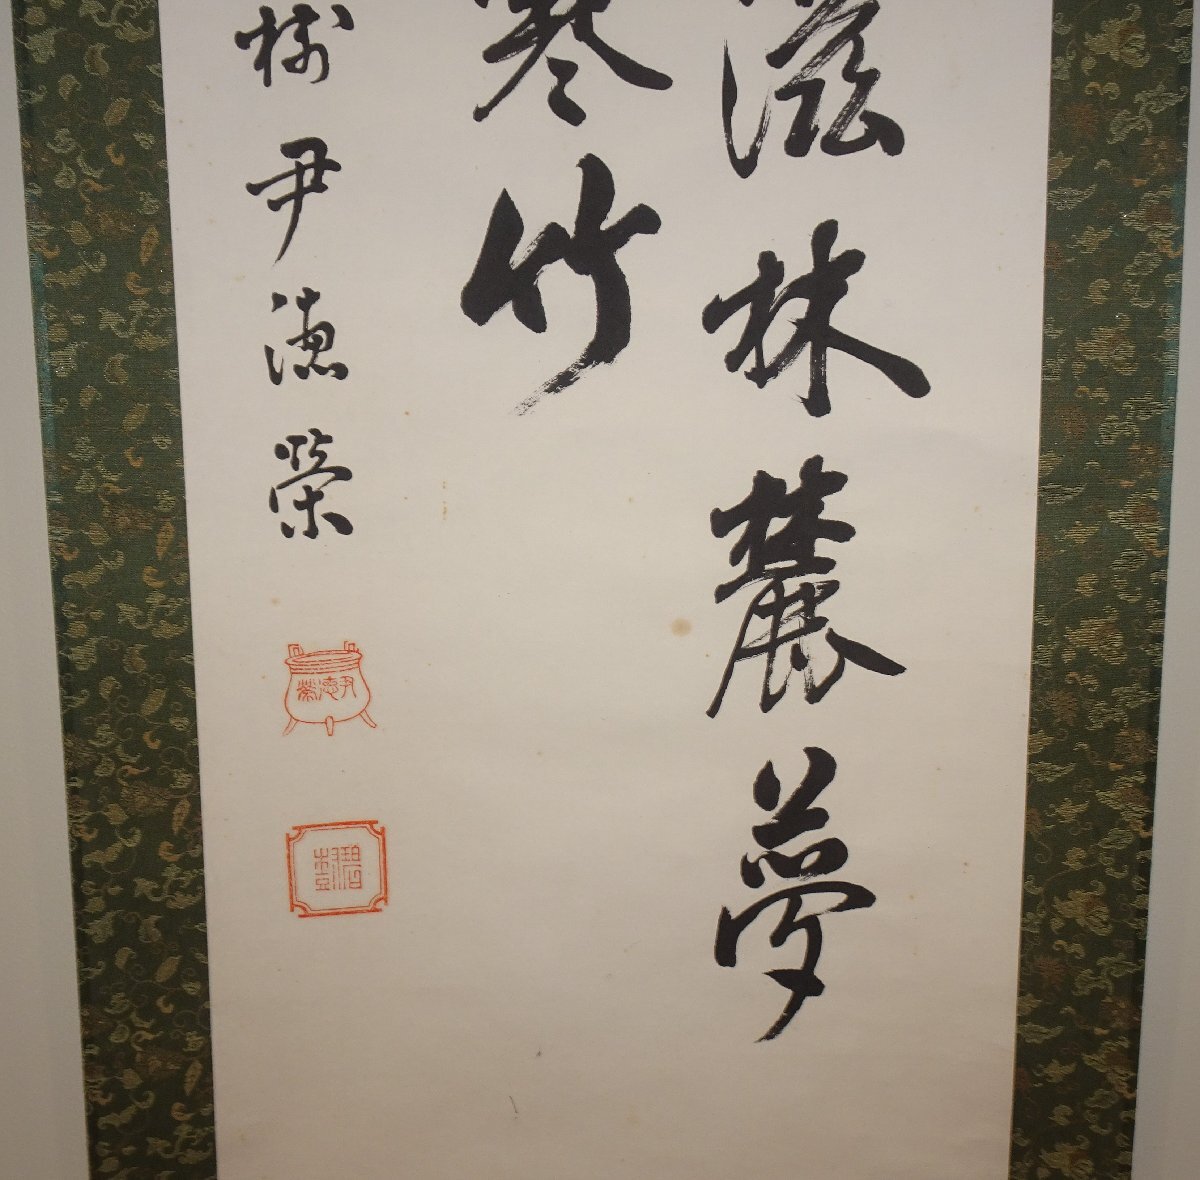 滋林麓夢
寒竹
樹尹德榮
尹德榮
碧樹